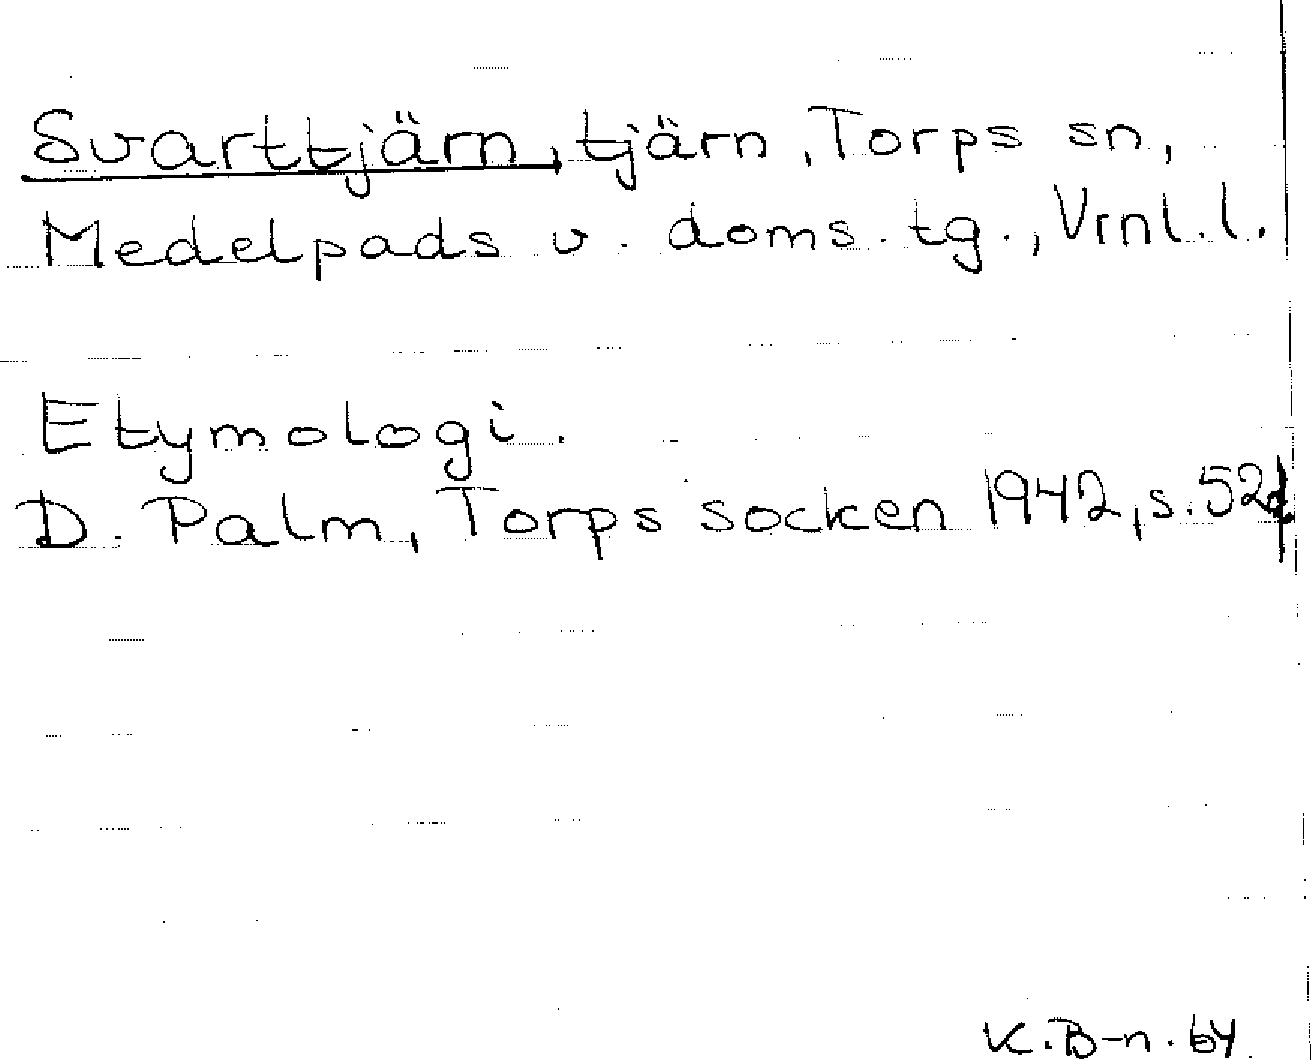 Svarttjärn, tjärn, Torps sn,
Medelpads v. doms. tg., Vrnl. l.
Etymologi.
D. Palm, Torps socken 1942, s.
K.B-n. 64.